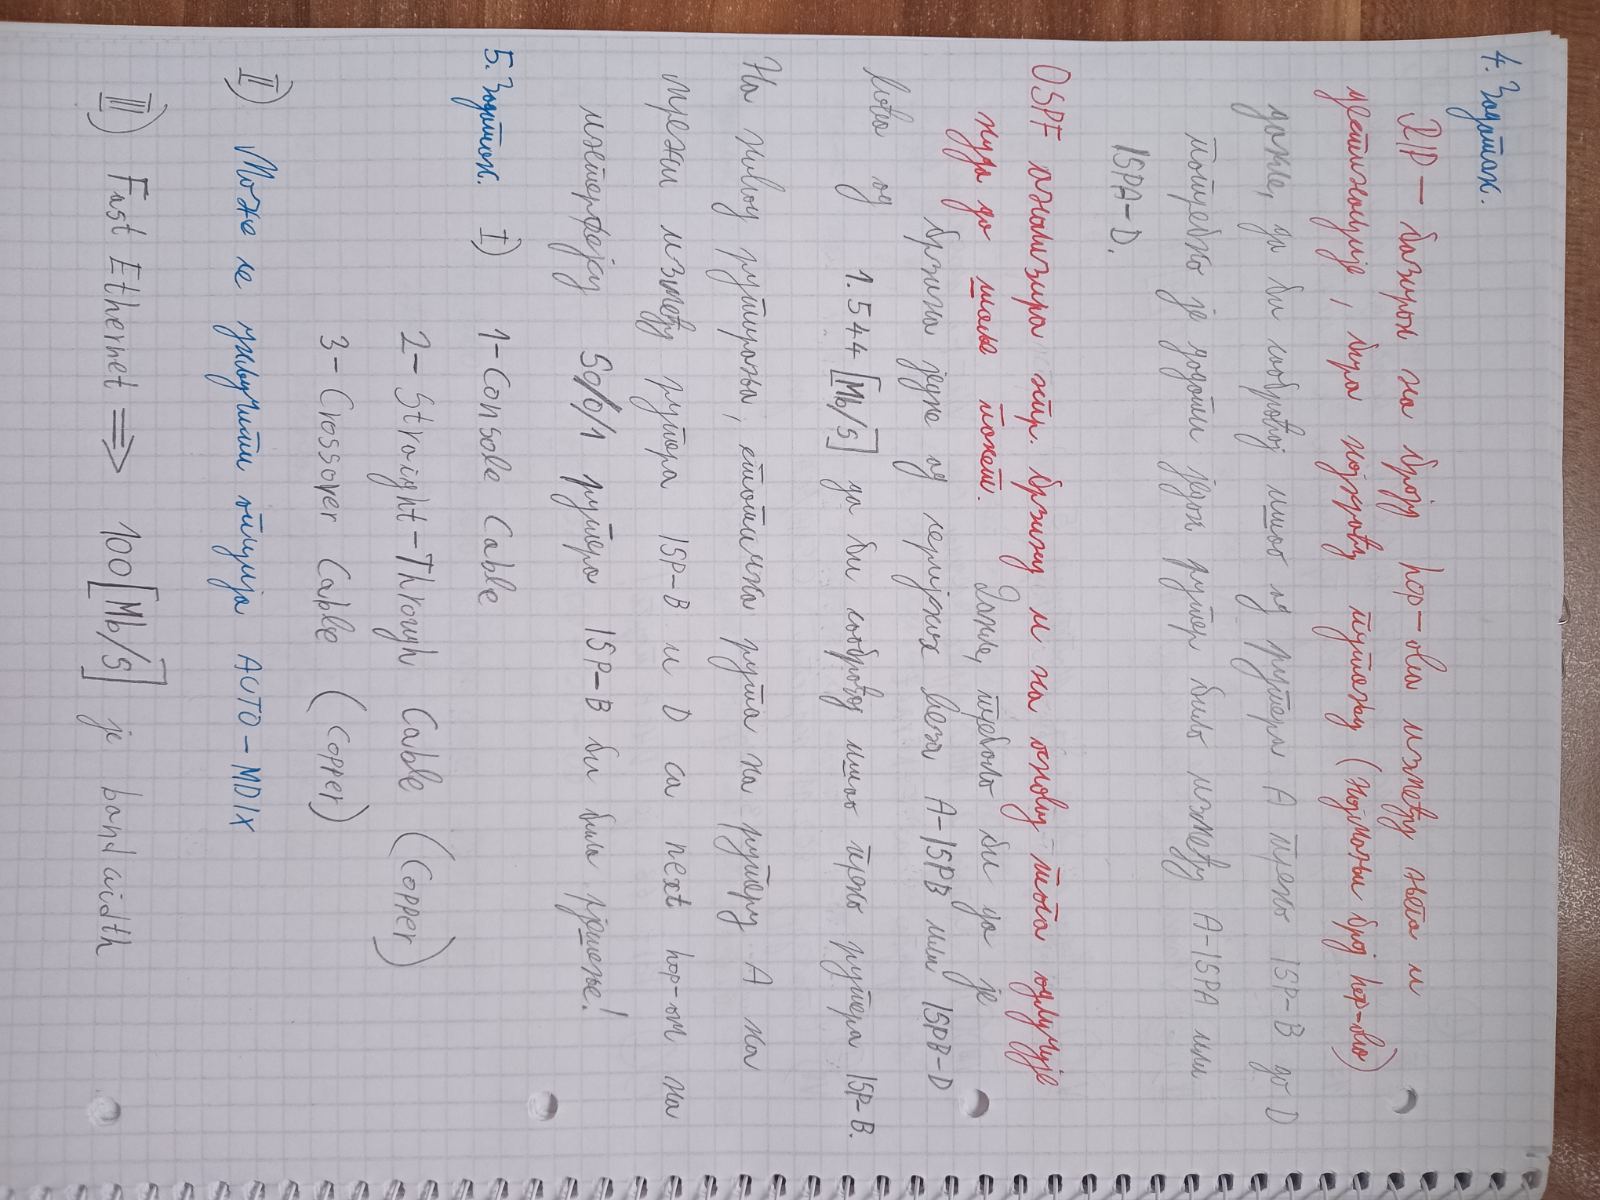 4. Задатак.
RIP – базиран на броју hop-ова између њега и
дестинације, бира најкраћу путању (најмањи број hop-ова)
дакле, да би саобраћај ишао од рутера A преко ISP-B до D
потребно је додати један рутер било између A-ISPA или
ISPA-D.
OSPF анализира нпр. брзину и на основу тога одлучује
куда да шаље пакет. Дакле, требало би да је
брзина једне од серијских веза A-ISPB или ISPB-D
већа од
1.544 [Mb/s] да би саобраћај ишао преко рутера ISP-B.
На нивоу рутирања, статичка рута на рутеру A ка
мрежи између рутера ISP-B и D са next hop-ом на
интерфејсу S0/0/1 рутера ISP-B би било рјешење!
5. Задатак. I) 1-Console Cable
2- Straight-Through Cable (Copper)
3- Crossover Cable (Copper)
II) Може се укључити опција AUTO-MDIX
III) Fast Ethernet => 100 [Mb/s] је bandwidth